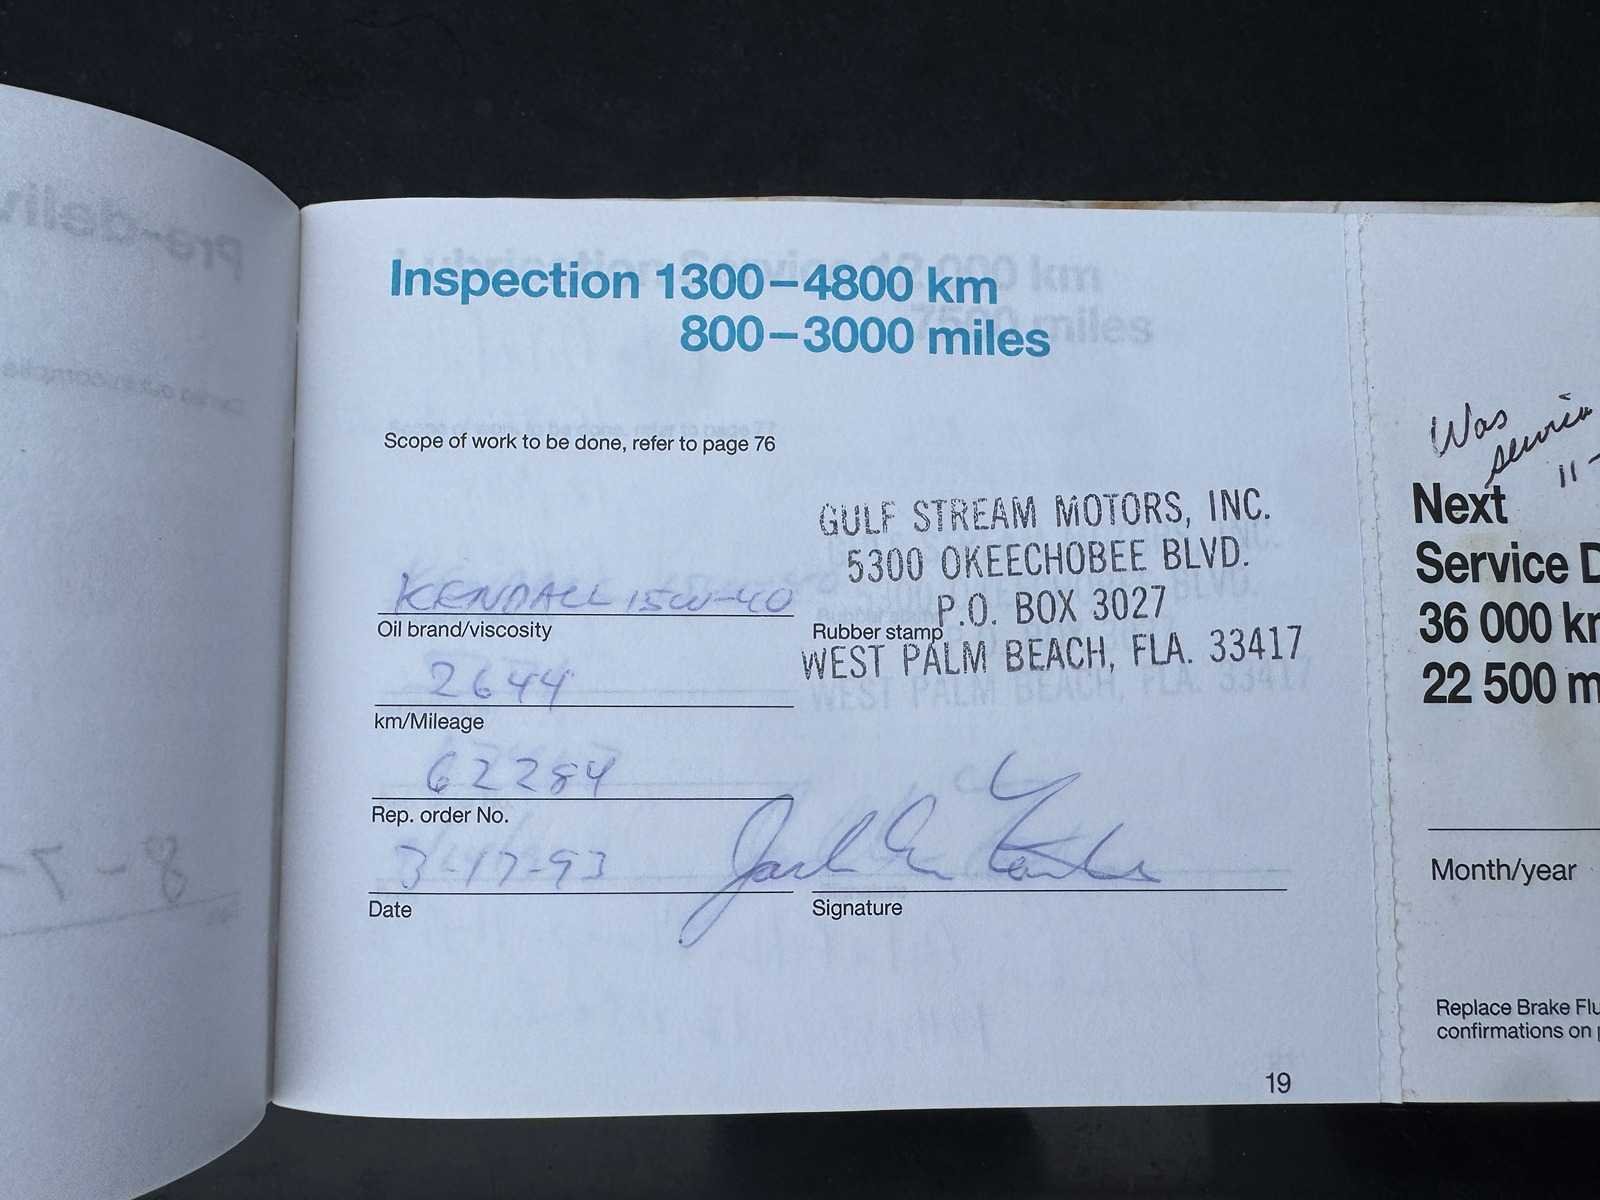 Inspection 1300–4800 km
800–3000 miles
Scope of work to be done, refer to page 76
GULF STREAM MOTORS, INC.
5300 OKEECHOBEE BLVD.
P.O. BOX 3027
WEST PALM BEACH, FLA. 33417
KENDALL 15W-40
Oil brand/viscosity
Rubber stamp
2644
km/Mileage
62284
Rep. order No.
3-17-93
Date
Signature
19
Was
11-
Next
Service D
36 000 km
22 500 m
Month/year
Replace Brake Flu
confirmations on p